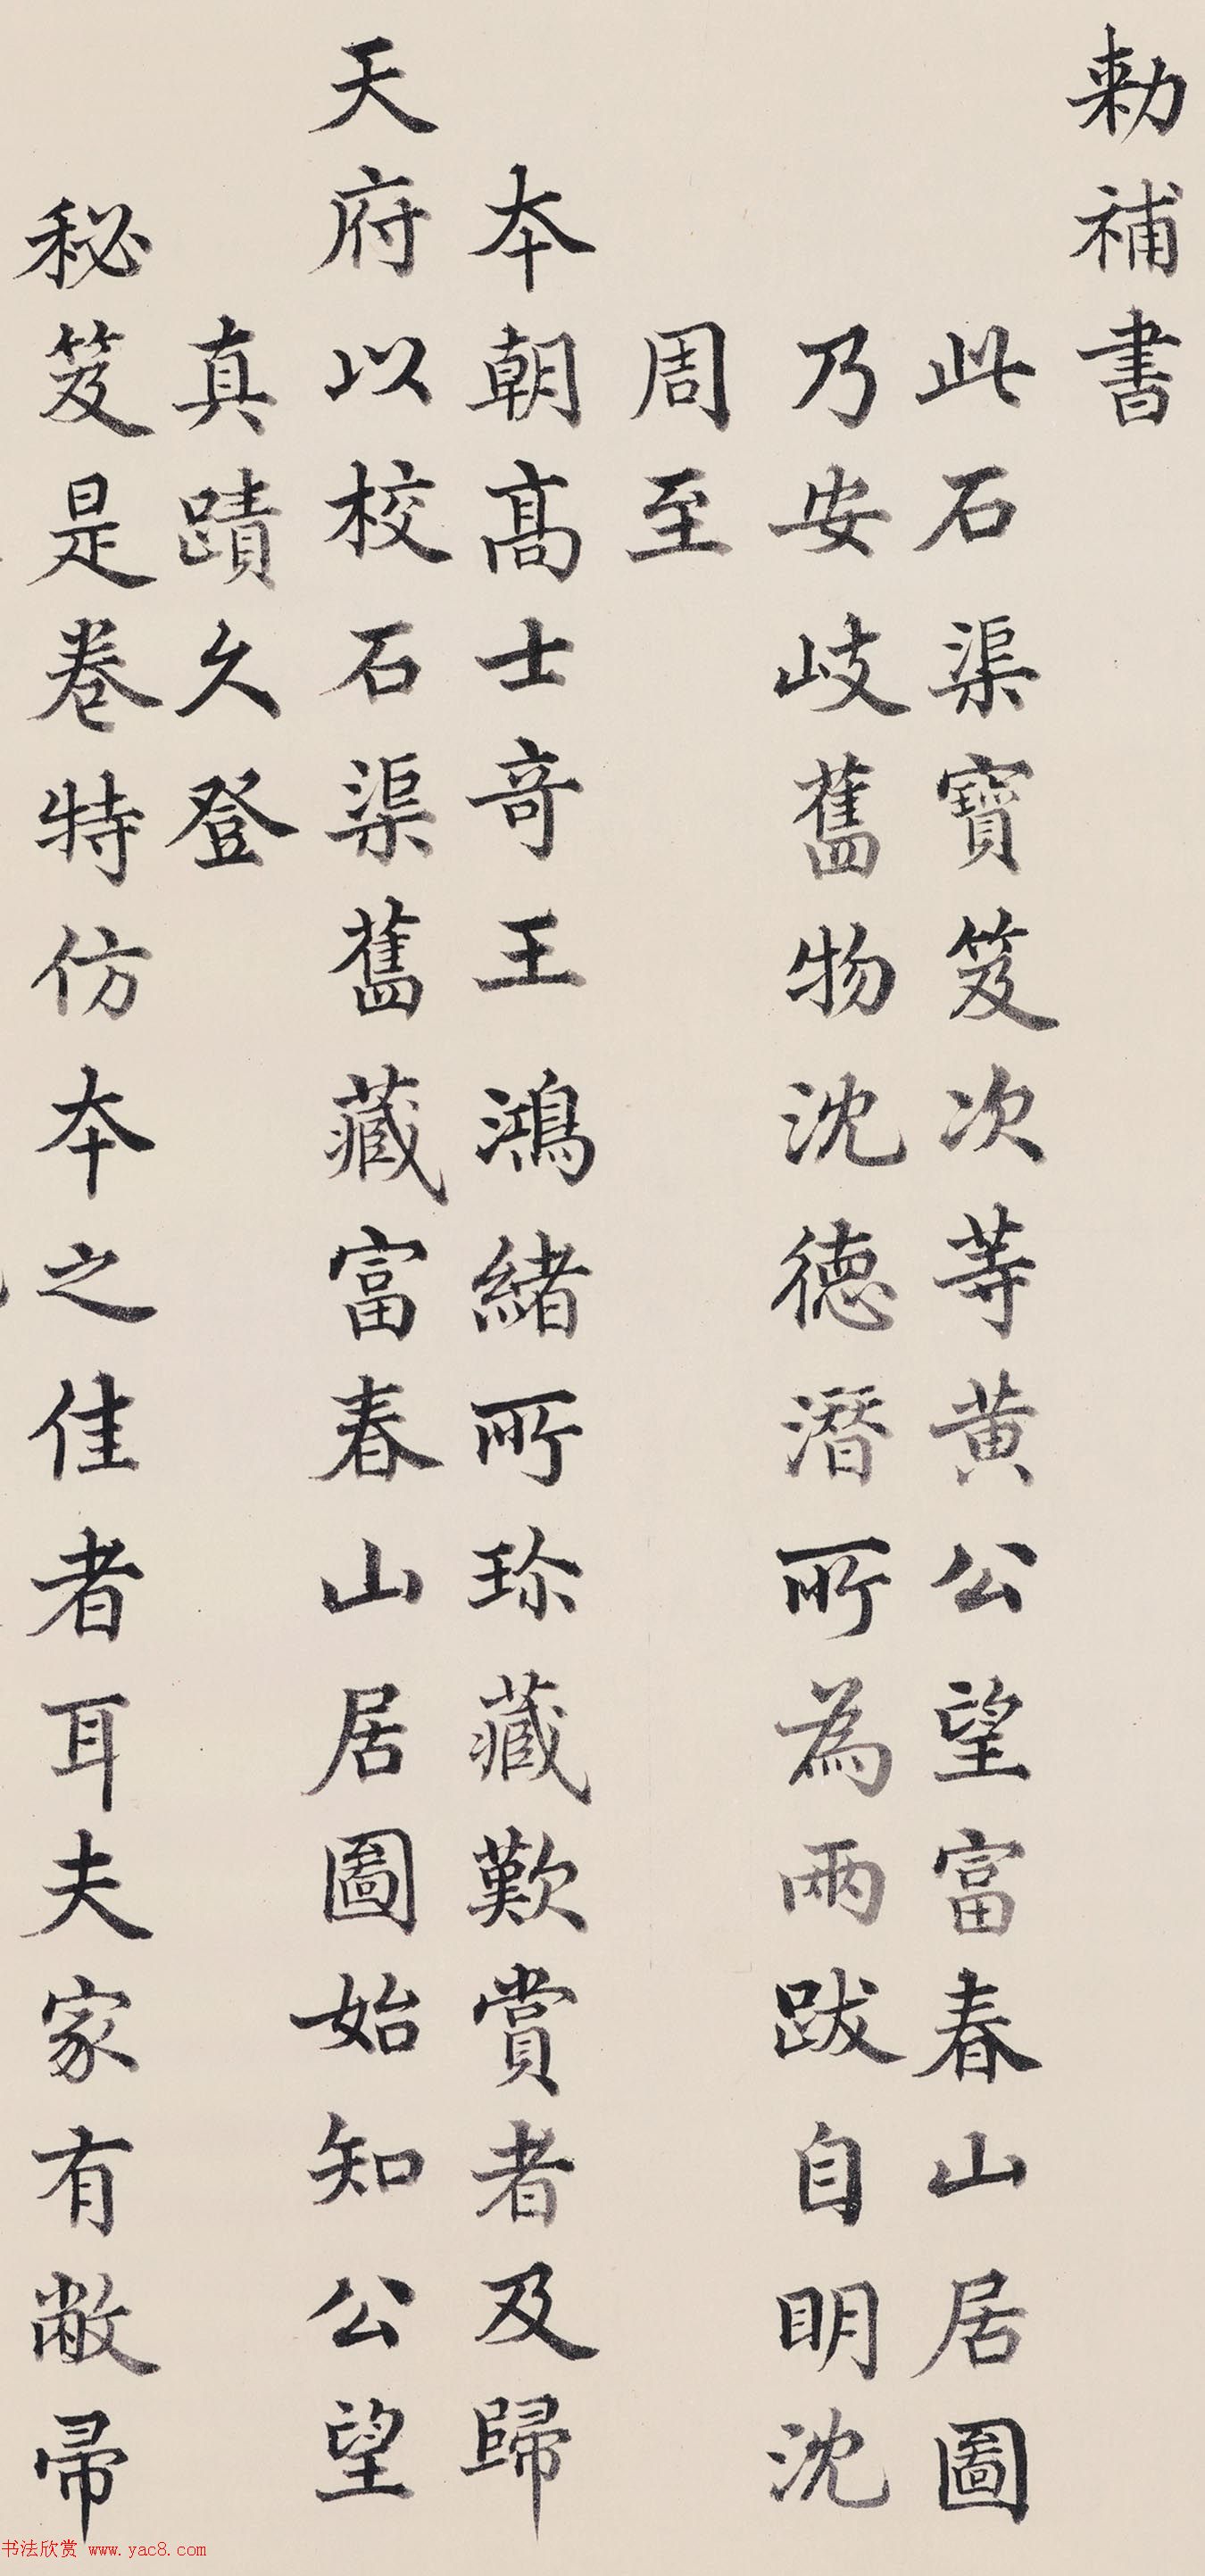 勑補書
此石渠寶笈次等黄公望富春山居圖
乃安岐舊物沈德潛所為兩跋自明沈
周至
本朝高士奇王鴻緒所珍藏歎賞者及歸
天府以校石渠舊藏富春山居圖始知公望
真蹟久登
秘笈是卷特仿本之佳者耳夫家有敝帚
书法欣赏 www.yac8.com